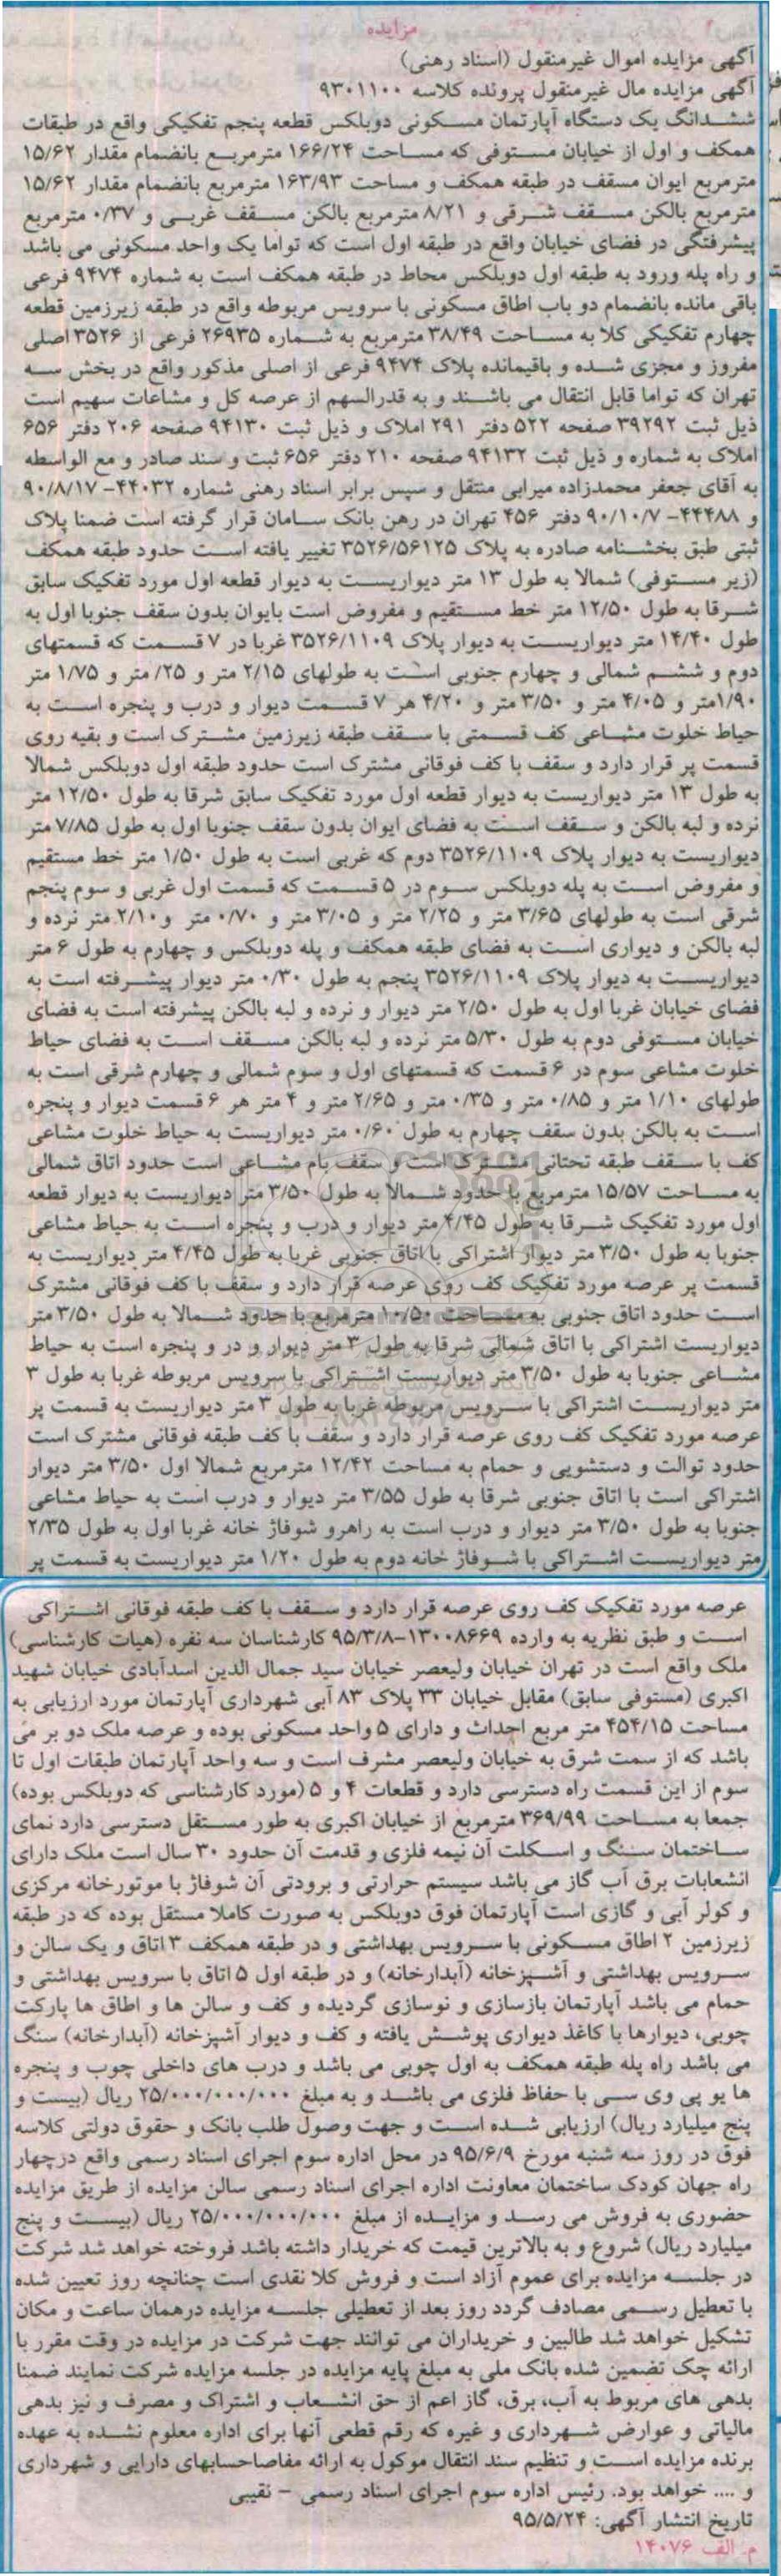 مزایده
آگهی مزایده اموال غیرمنقول (اسناد رهنی)
آگهی مزایده مال غیرمنقول پرونده کلاسه ۹۳۰۱۱۰۰
ششدانگ یک دستگاه آپارتمان مسکونی دوبلکس قطعه پنجم تفکیکی واقع در طبقات
همکف و اول از خیابان مستوفی که مساحت ۱۶۶/۲۴ مترمربع بانضمام مقدار ۱۵/۶۲
مترمربع ایوان مسقف در طبقه همکف و مساحت ۱۶۳/۹۳ مترمربع بانضمام مقدار ۱۵/۶۲
مترمربع بالکن مسقف شرقی و ۸/۲۱ مترمربع بالکن مسقف غربی و ۰/۳۷ مترمربع
پیشرفتگی در فضای خیابان واقع در طبقه اول است که تواما یک واحد مسکونی می باشد
و راه پله ورود به طبقه اول دوبلکس محاط در طبقه همکف است به شماره ۹۴۷۴ فرعی
باقی مانده بانضمام دو باب اطاق مسکونی با سرویس مربوطه واقع در طبقه زیرزمین قطعه
چهارم تفکیکی کلا به مساحت ۳۸/۴۹ مترمربع به شماره ۲۶۹۳۵ فرعی از ۳۵۲۶ اصلی
مفروز و مجزی شده و باقیمانده پلاک ۹۴۷۴ فرعی از اصلی مذکور واقع در بخش سه
تهران که تواما قابل انتقال می باشند و به قدرالسهم از عرصه کل و مشاعات سهیم است
ذیل ثبت ۳۹۲۹۲ صفحه ۵۲۲ دفتر ۲۹۱ املاک و ذیل ثبت ۹۴۱۳۰ صفحه ۲۰۶ دفتر ۶۵۶
املاک به شماره و ذیل ثبت ۹۴۱۳۲ صفحه ۲۱۰ دفتر ۶۵۶ ثبت و سند صادر و مع الواسطه
به آقای جعفر محمدزاده میرابی منتقل و سپس برابر اسناد رهنی شماره ۴۴۰۳۲- ۹۰/۸/۱۷
و ۴۴۴۸۸- ۹۰/۱۰/۷ دفتر ۴۵۶ تهران در رهن بانک سامان قرار گرفته است ضمنا پلاک
ثبتی طبق بخشنامه صادره به پلاک ۳۵۲۶/۵۶۱۲۵ تغییر یافته است حدود طبقه همکف
(زیر مستوفی) شمالا به طول ۱۳ متر دیواریست به دیوار قطعه اول مورد تفکیک سابق
شرقا به طول ۱۲/۵۰ متر خط مستقیم و مفروض است بایوان بدون سقف جنوبا اول به
طول ۱۴/۴۰ متر دیواریست به دیوار پلاک ۳۵۲۶/۱۱۰۹ غربا در ۷ قسمت که قسمتهای
دوم و ششم شمالی و چهارم جنوبی است به طولهای ۲/۱۵ متر و ۲۵/متر و ۱/۷۵ متر
۱/۹۰متر و ۴/۰۵ متر و ۳/۵۰ متر و ۴/۲۰ هر ۷ قسمت دیوار و درب و پنجره است به
حیاط خلوت مشاعی کف قسمتی با سقف طبقه زیرزمین مشترک است و بقیه روی
قسمت پر قرار دارد و سقف با کف فوقانی مشترک است حدود طبقه اول دوبلکس شمالا
به طول ۱۳ متر دیواریست به دیوار قطعه اول مورد تفکیک سابق شرقا به طول ۱۲/۵۰ متر
نرده و لبه بالکن و سقف است به فضای ایوان بدون سقف جنوبا اول به طول ۷/۸۵ متر
دیواریست به دیوار پلاک ۳۵۲۶/۱۱۰۹ دوم که غربی است به طول ۱/۵۰ متر خط مستقیم
و مفروض است به پله دوبلکس سوم در ۵ قسمت که قسمت اول غربی و سوم پنجم
شرقی است به طولهای ۳/۶۵ متر و ۲/۲۵ متر و ۳/۰۵ متر و ۰/۷۰ متر و ۲/۱۰ متر نرده و
لبه بالکن و دیواری است به فضای طبقه همکف و پله دوبلکس و چهارم به طول ۶ متر
دیواریست به دیوار پلاک ۳۵۲۶/۱۱۰۹ پنجم به طول ۰/۳۰ متر دیوار پیشرفته است به
فضای خیابان غربا اول به طول ۲/۵۰ متر دیوار و نرده و لبه بالکن پیشرفته است به فضای
خیابان مستوفی دوم به طول ۵/۳۰ متر نرده و لبه بالکن مسقف است به فضای حیاط
خلوت مشاعی سوم در ۶ قسمت که قسمتهای اول و سوم شمالی و چهارم شرقی است به
طولهای ۱/۱۰ متر و ۰/۸۵ متر و ۰/۳۵ متر و ۲/۶۵ متر و ۴ متر هر ۶ قسمت دیوار و پنجره
است به بالکن بدون سقف چهارم به طول ۰/۶۰ متر دیواریست به حیاط خلوت مشاعی
کف با سقف طبقه تحتانی مشترک است و سقف بام مشاعی است حدود اتاق شمالی
به مساحت ۱۵/۵۷ مترمربع با حدود شمالا به طول ۳/۵۰ متر دیواریست به دیوار قطعه
اول مورد تفکیک شرقا به طول ۴/۴۵ متر دیوار و درب و پنجره است به حیاط مشاعی
جنوبا به طول ۳/۵۰ متر دیوار اشتراکی با اتاق جنوبی غربا به طول ۴/۴۵ متر دیواریست به
قسمت پر عرصه مورد تفکیک کف روی عرصه قرار دارد و سقف با کف فوقانی مشترک
است حدود اتاق جنوبی به مساحت ۱۰/۵۰ مترمربع با حدود شمالا به طول ۳/۵۰ متر
دیواریست اشتراکی با اتاق شمالی شرقا به طول ۳ متر دیوار و در و پنجره است به حیاط
مشاعی جنوبا به طول ۳/۵۰ متر دیواریست اشتراکی با سرویس مربوطه غربا به طول ۳
متر دیواریست اشتراکی با سرویس مربوطه غربا به طول ۳ متر دیواریست به قسمت پر
عرصه مورد تفکیک کف روی عرصه قرار دارد و سقف با کف طبقه فوقانی مشترک است
حدود توالت و دستشویی و حمام به مساحت ۱۲/۴۲ مترمربع شمالا اول ۳/۵۰ متر دیوار
اشتراکی است با اتاق جنوبی شرقا به طول ۳/۵۵ متر دیوار و درب است به حیاط مشاعی
جنوبا به طول ۳/۵۰ متر دیوار و درب است به راهرو شوفاژ خانه غربا اول به طول ۲/۳۵
متر دیواریست اشتراکی با شوفاژ خانه دوم به طول ۱/۲۰ متر دیواریست به قسمت پر
عرصه مورد تفکیک کف روی عرصه قرار دارد و سقف با کف طبقه فوقانی اشتراکی
است و طبق نظریه به وارده ۱۳۰۰۸۶۶۹-۹۵/۳/۸ کارشناسان سه نفره (هیات کارشناسی)
ملک واقع است در تهران خیابان ولیعصر خیابان سید جمال الدین اسدآبادی خیابان شهید
اکبری (مستوفی سابق) مقابل خیابان ۳۳ پلاک ۸۳ آبی شهرداری آپارتمان مورد ارزیابی به
مساحت ۴۵۴/۱۵ متر مربع احداث و دارای ۵ واحد مسکونی بوده و عرصه ملک دو بر می
باشد که از سمت شرق به خیابان ولیعصر مشرف است و سه واحد آپارتمان طبقات اول تا
سوم از این قسمت راه دسترسی دارد و قطعات ۴ و ۵ (مورد کارشناسی که دوبلکس بوده)
جمعا به مساحت ۳۶۹/۹۹ مترمربع از خیابان اکبری به طور مستقل دسترسی دارد نمای
ساختمان سنگ و اسکلت آن نیمه فلزی و قدمت آن حدود ۳۰ سال است ملک دارای
انشعابات برق آب گاز می باشد سیستم حرارتی و برودتی آن شوفاژ با موتورخانه مرکزی
و کولر آبی و گازی است آپارتمان فوق دوبلکس به صورت کاملا مستقل بوده که در طبقه
زیرزمین ۲ اطاق مسکونی با سرویس بهداشتی و در طبقه همکف ۳ اتاق و یک سالن و
سرویس بهداشتی و آشپزخانه (آبدارخانه) و در طبقه اول ۵ اتاق با سرویس بهداشتی و
حمام می باشد آپارتمان بازسازی و نوسازی گردیده و کف و سالن ها و اطاق ها پارکت
چوبی، دیوارها با کاغذ دیواری پوشش یافته و کف و دیوار آشپزخانه (آبدارخانه) سنگ
می باشد راه پله طبقه همکف به اول چوبی می باشد و درب های داخلی چوب و پنجره
ها یو پی وی سی با حفاظ فلزی می باشد و به مبلغ ۲۵/۰۰۰/۰۰۰/۰۰۰ ریال (بیست و
پنج میلیارد ریال) ارزیابی شده است و جهت وصول طلب بانک و حقوق دولتی کلاسه
فوق در روز سه شنبه مورخ ۹۵/۶/۹ در محل اداره سوم اجرای اسناد رسمی واقع درچهار
راه جهان کودک ساختمان معاونت اداره اجرای اسناد رسمی سالن مزایده از طریق مزایده
حضوری به فروش می رسد و مزایده از مبلغ ۲۵/۰۰۰/۰۰۰/۰۰۰ ریال (بیست و پنج
میلیارد ریال) شروع و به بالاترین قیمت که خریدار داشته باشد فروخته خواهد شد شرکت
در جلسه مزایده برای عموم آزاد است و فروش کلا نقدی است چنانچه روز تعیین شده
با تعطیل رسمی مصادف گردد روز بعد از تعطیلی جلسه مزایده درهمان ساعت و مکان
تشکیل خواهد شد طالبین و خریداران می توانند جهت شرکت در مزایده در وقت مقرر با
ارائه چک تضمین شده بانک ملی به مبلغ پایه مزایده در جلسه مزایده شرکت نمایند ضمنا
بدهی های مربوط به آب، برق، گاز اعم از حق انشعاب و اشتراک و مصرف و نیز بدهی
مالیاتی و عوارض شهرداری و غیره که رقم قطعی آنها برای اداره معلوم نشده به عهده
برنده مزایده است و تنظیم سند انتقال موکول به ارائه مفاصاحسابهای دارایی و شهرداری
و .... خواهد بود. رئیس اداره سوم اجرای اسناد رسمی - نقیبی
تاریخ انتشار آگهی: ۹۵/۵/۲۴
م. الف ۱۴۰۷۶